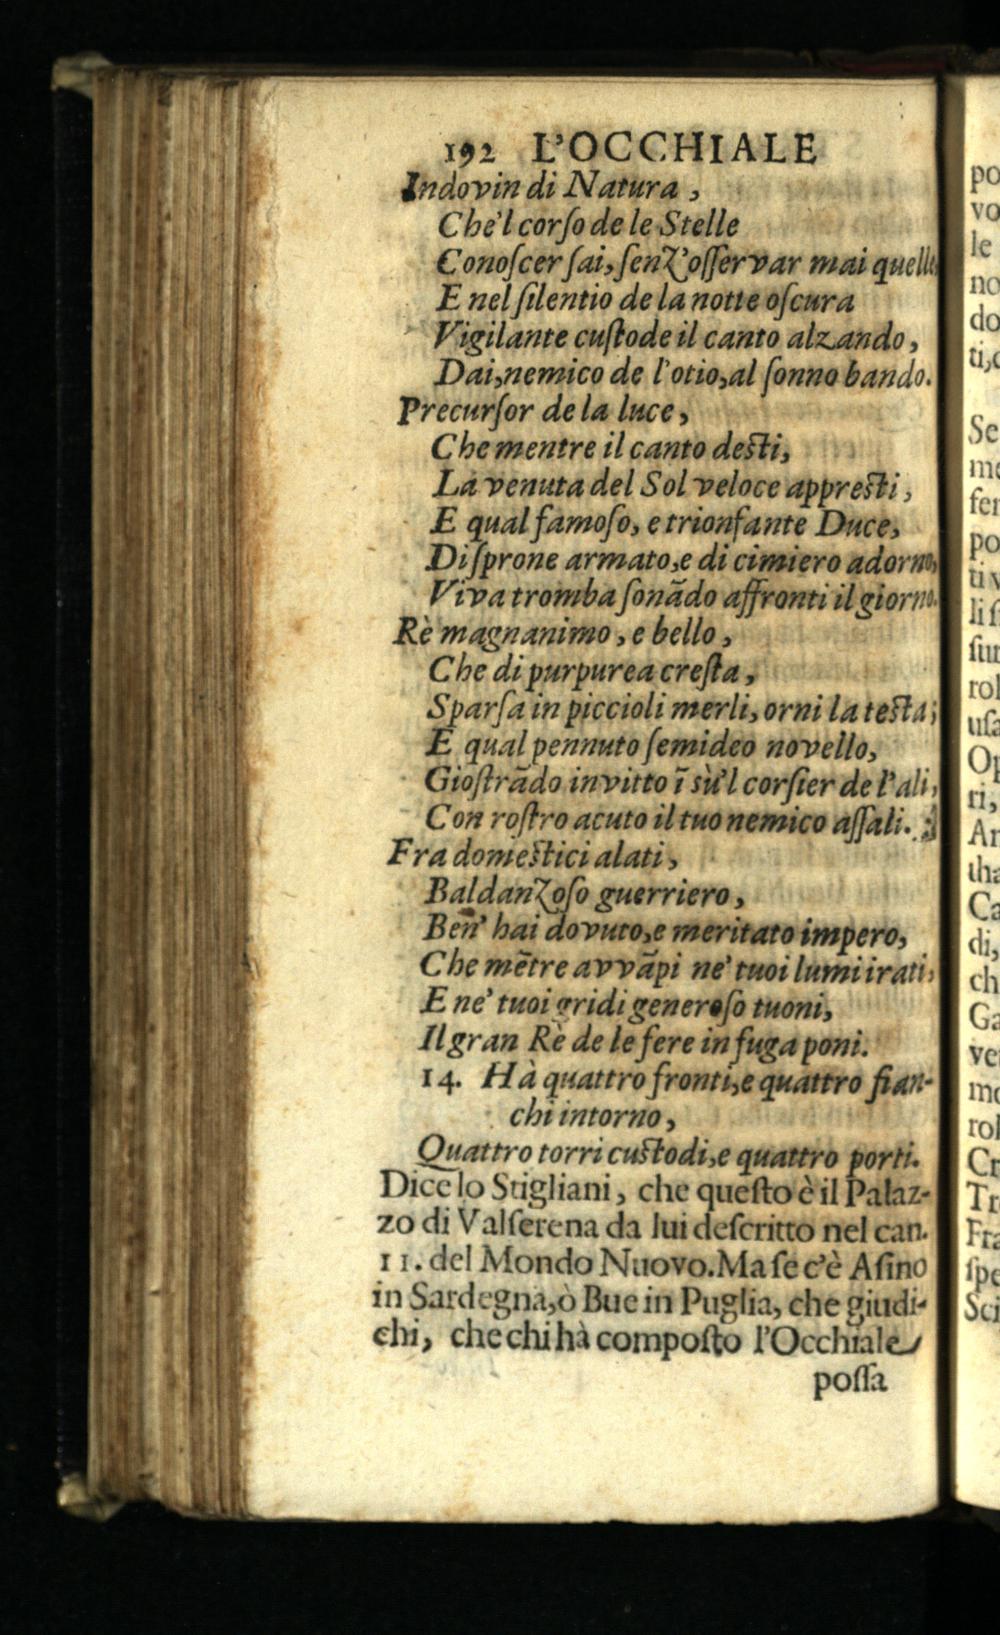 192 L'OCCHIALE
Indovin di Natura,
Che'l corſo de le Stelle
Conoſcer ſai, ſenz'oſſervar mai quelle,
E nel ſilentio de la notte oſcura
Vigilante cuſtode il canto alzando,
Dai, nemico de l'otio, al ſonno bando.
Precurſor de la luce,
Che mentre il canto deſti,
La venuta del Sol veloce appreſti,
E qual famoſo, e trionfante Duce,
Di ſprone armato, e di cimiero adorno,
Viva tromba ſonãdo affronti il giorno.
Rè magnanimo, e bello,
Che di purpurea creſta,
Sparſa in piccioli merli, orni la teſta;
E qual pennuto ſemideo novello,
Gioſtrãdo invitto ĩ sù'l corſier de l'ali,
Con roſtro acuto il tuo nemico aſſali.
Fra domeſtici alati,
Baldanzoſo guerriero,
Ben' hai dovuto, e meritato impero,
Che mẽtre avvãpi ne' tuoi lumi irati,
E ne' tuoi gridi generoſo tuoni,
Il gran Rè de le fere in fuga poni.
14. Hà quattro fronti, e quattro fian-
chi intorno,
Quattro torri cuſtodi, e quattro porti.
Dice lo Stigliani, che queſto è il Palaz-
zo di Valſerena da lui deſcritto nel can.
11. del Mondo Nuovo. Ma ſe c'è Aſino
in Sardegna, ò Bue in Puglia, che giudi-
chi, che chi hà compoſto l'Occhiale
poſſa
po
vo
le
no
do
Se
me
fer
po
ti v
li ſ
ſur
rol
uſa
Op
ri,
Ar
tha
Ca
di,
ch
Ga
ve
mo
rol
Cr
Tr
Fra
ſpe
Sci